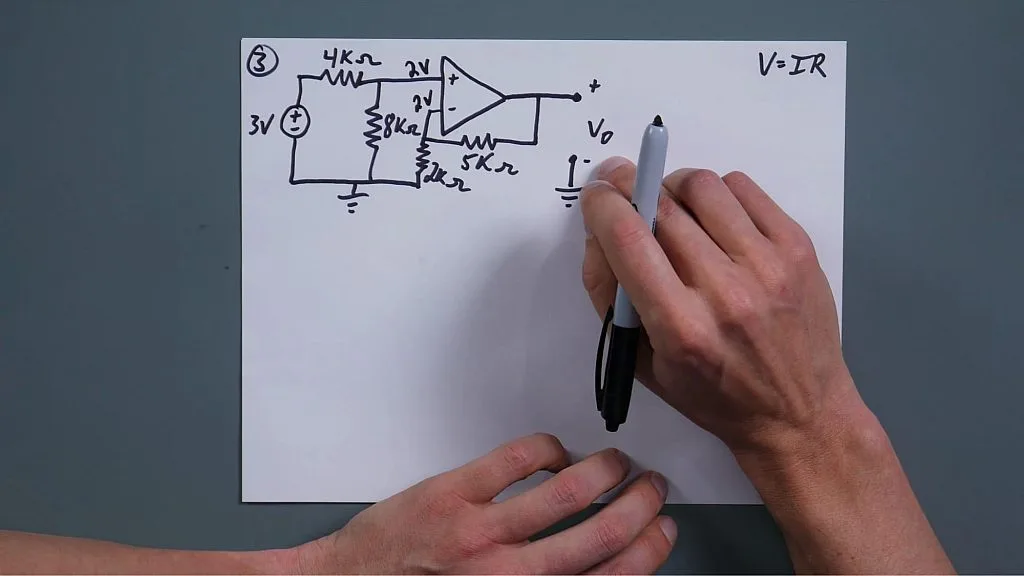 3
V=IR
4KΩ
2V
+
2V
-
+
3V
+
-
8KΩ
V₀
5KΩ
-
2KΩ